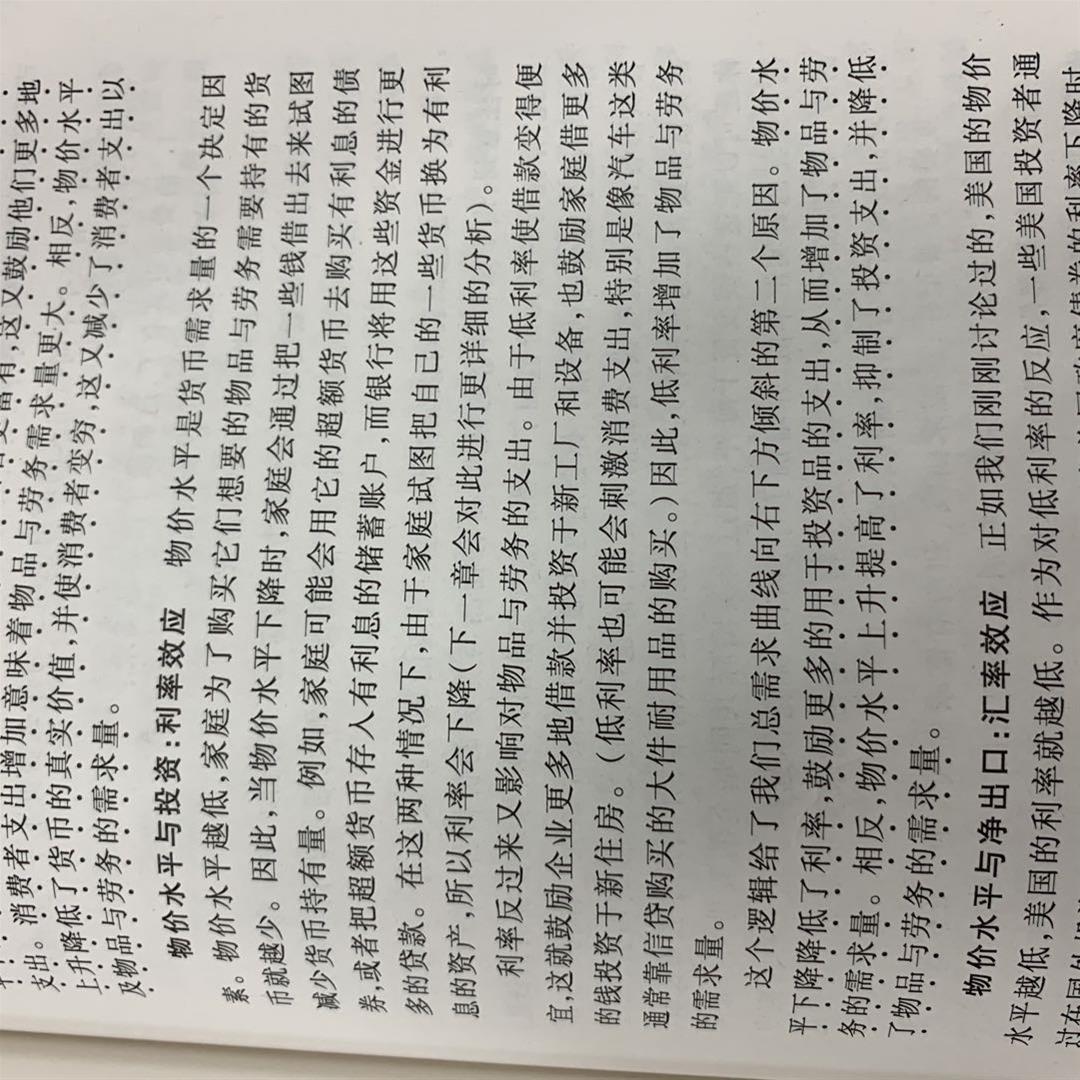 鼓励他们更多地
支出。消费者支出增加意味着物品与劳务需求量更大。相反,物价水平
上升降低了货币的真实价值,并使消费者变穷,这又减少了消费者支出以
及物品与劳务的需求量。
物价水平与投资:利率效应 物价水平是货币需求量的一个决定因
素。物价水平越低,家庭为了购买它们想要的物品与劳务需要持有的货
币就越少。因此,当物价水平下降时,家庭会通过把一些钱借出去来试图
减少货币持有量。例如,家庭可能会用它的超额货币去购买有利息的债
券,或者把超额货币存入有利息的储蓄账户,而银行将用这些资金进行更
多的贷款。在这两种情况下,由于家庭试图把自己的一些货币换为有利
息的资产,所以利率会下降(下一章会对此进行更详细的分析)。
利率反过来又影响对物品与劳务的支出。由于低利率使借款变得便
宜,这就鼓励企业更多地借款并投资于新工厂和设备,也鼓励家庭借更多
的钱投资于新住房。(低利率也可能会刺激消费支出,特别是像汽车这类
通常靠信贷购买的大件耐用品的购买。)因此,低利率增加了物品与劳务
的需求量。
这个逻辑给了我们总需求曲线向右下方倾斜的第二个原因。物价水
平下降降低了利率,鼓励更多的用于投资品的支出,从而增加了物品与劳
务的需求量。相反,物价水平上升提高了利率,抑制了投资支出,并降低
了物品与劳务的需求量。
物价水平与净出口:汇率效应 正如我们刚刚讨论过的,美国的物价
水平越低,美国的利率就越低。作为对低利率的反应,一些美国投资者通
过在国外